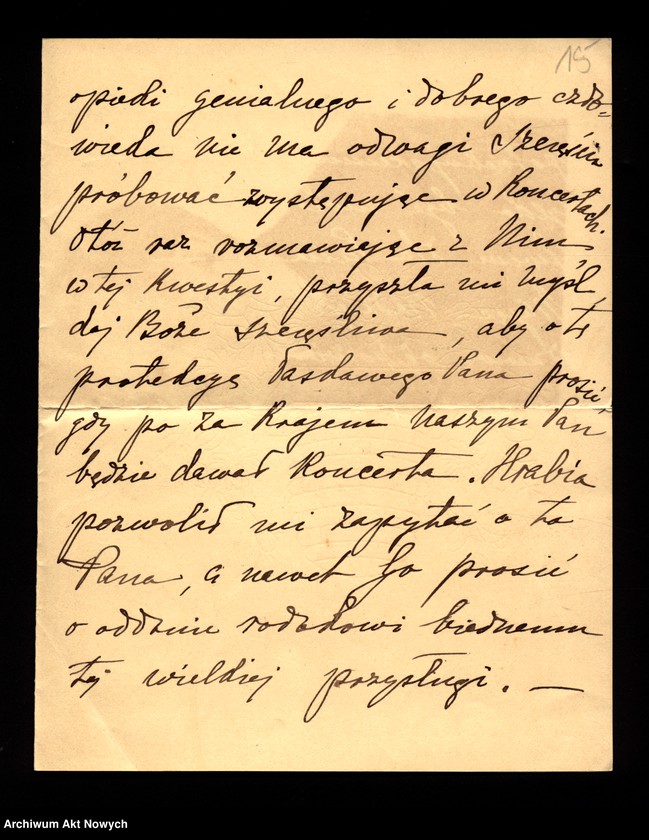 15
opieki genialnego i dobrego czło=
wieka nie ma odwagi szczęścia
próbować występując w Koncertach.
Otóż raz rozmawiając z Nim
w tej Kwestyi, przyszła mi myśl
daj Boże szczęśliwa, aby o tę
protekcyę Łaskawego Pana prosić
gdy po za Krajem naszym Pan
będzie dawał Koncerta. Hrabia
pozwolił mi zapytać o to
Pana, a nawet Go prosić
o oddanie rodakowi biednemu
tej wielkiej przysługi. —
Archiwum Akt Nowych